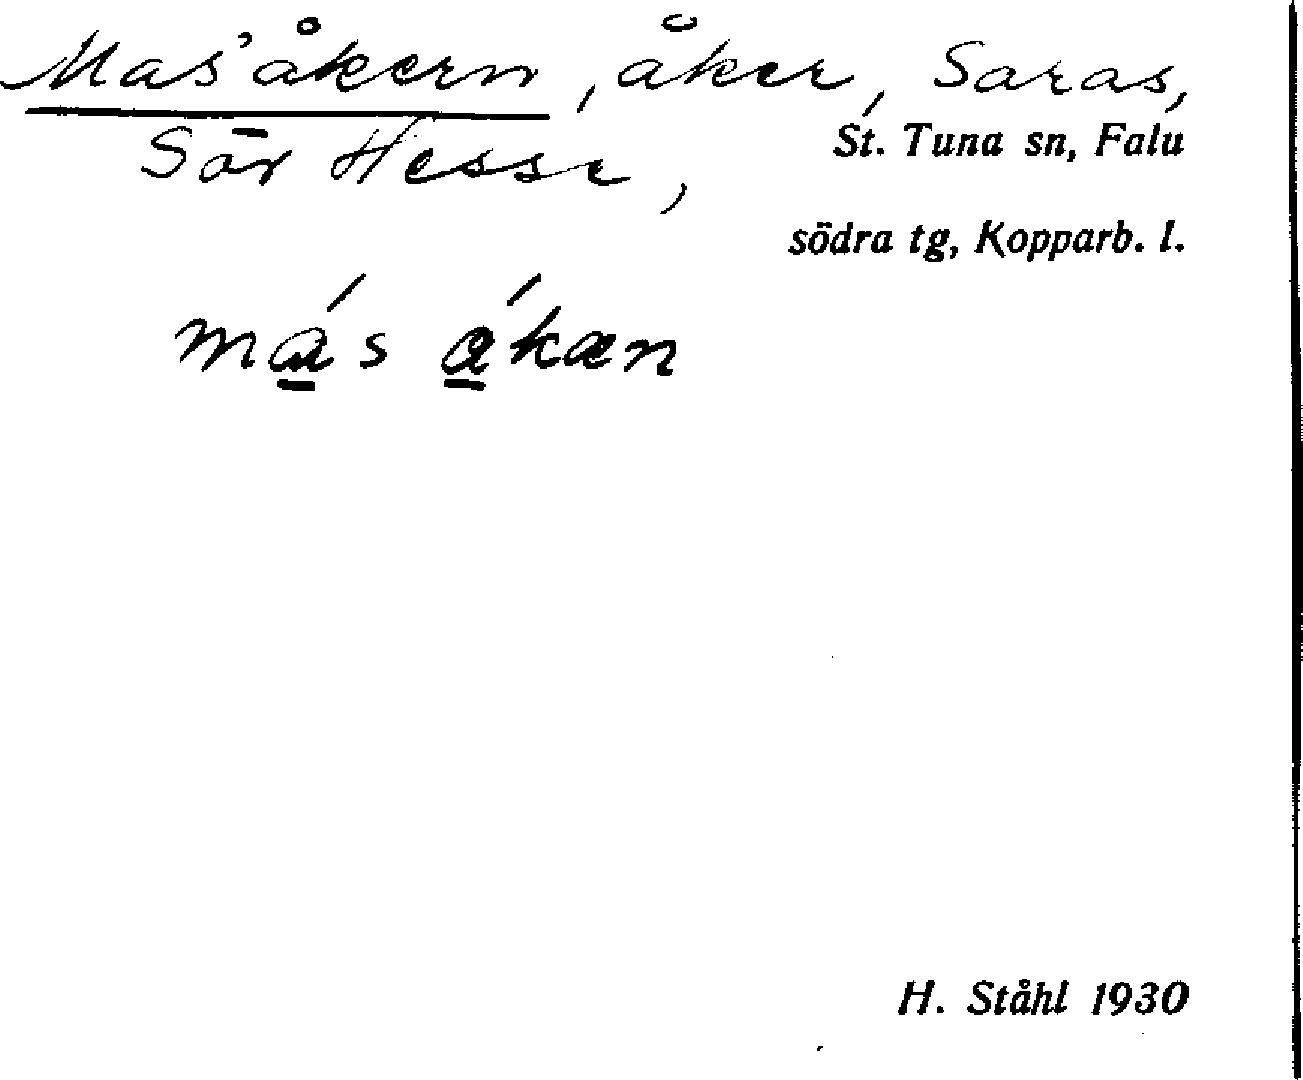 Mas'åkern, åker, Saras,
Sör Hesse,
St. Tuna sn, Falu
södra tg, Kopparb. l.
más åkæn
H. Ståhl 1930